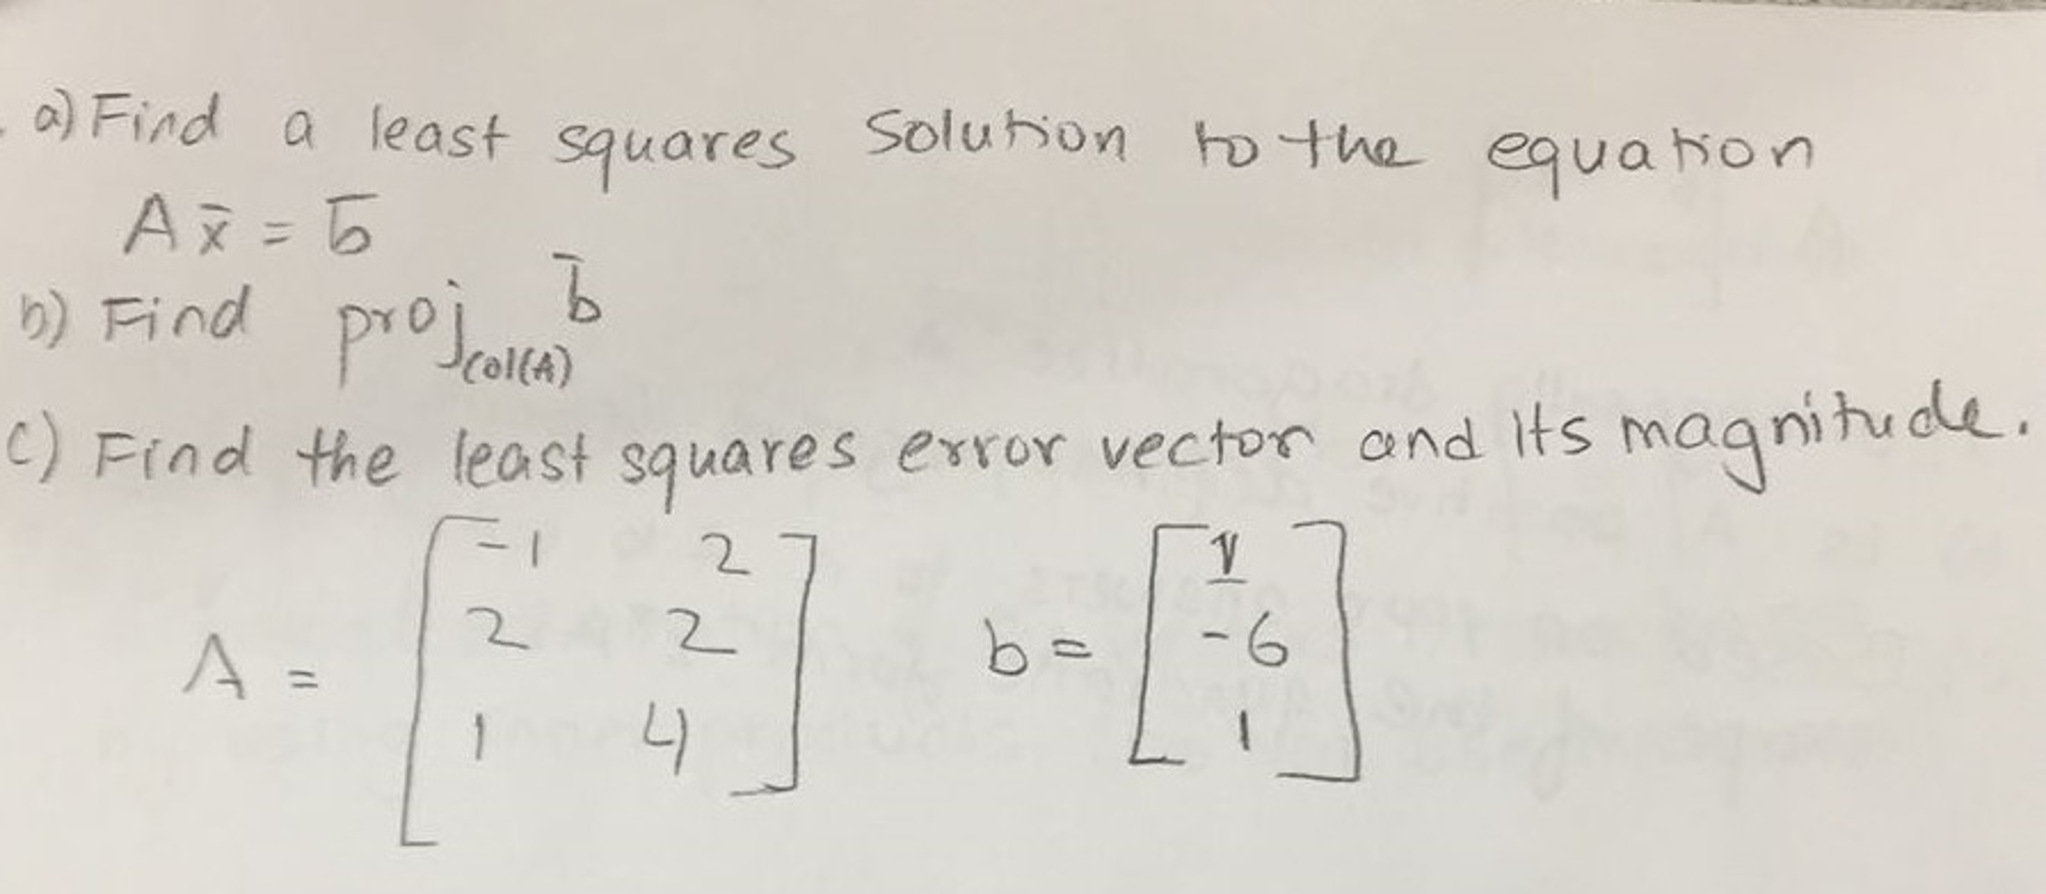 a) Find a least squares solution to the equation
A x̄ = b̄
b) Find proj_col(A) b̄
c) Find the least squares error vector and its magnitude.
-1 2
2 2 -6
A = b =
1 4 1